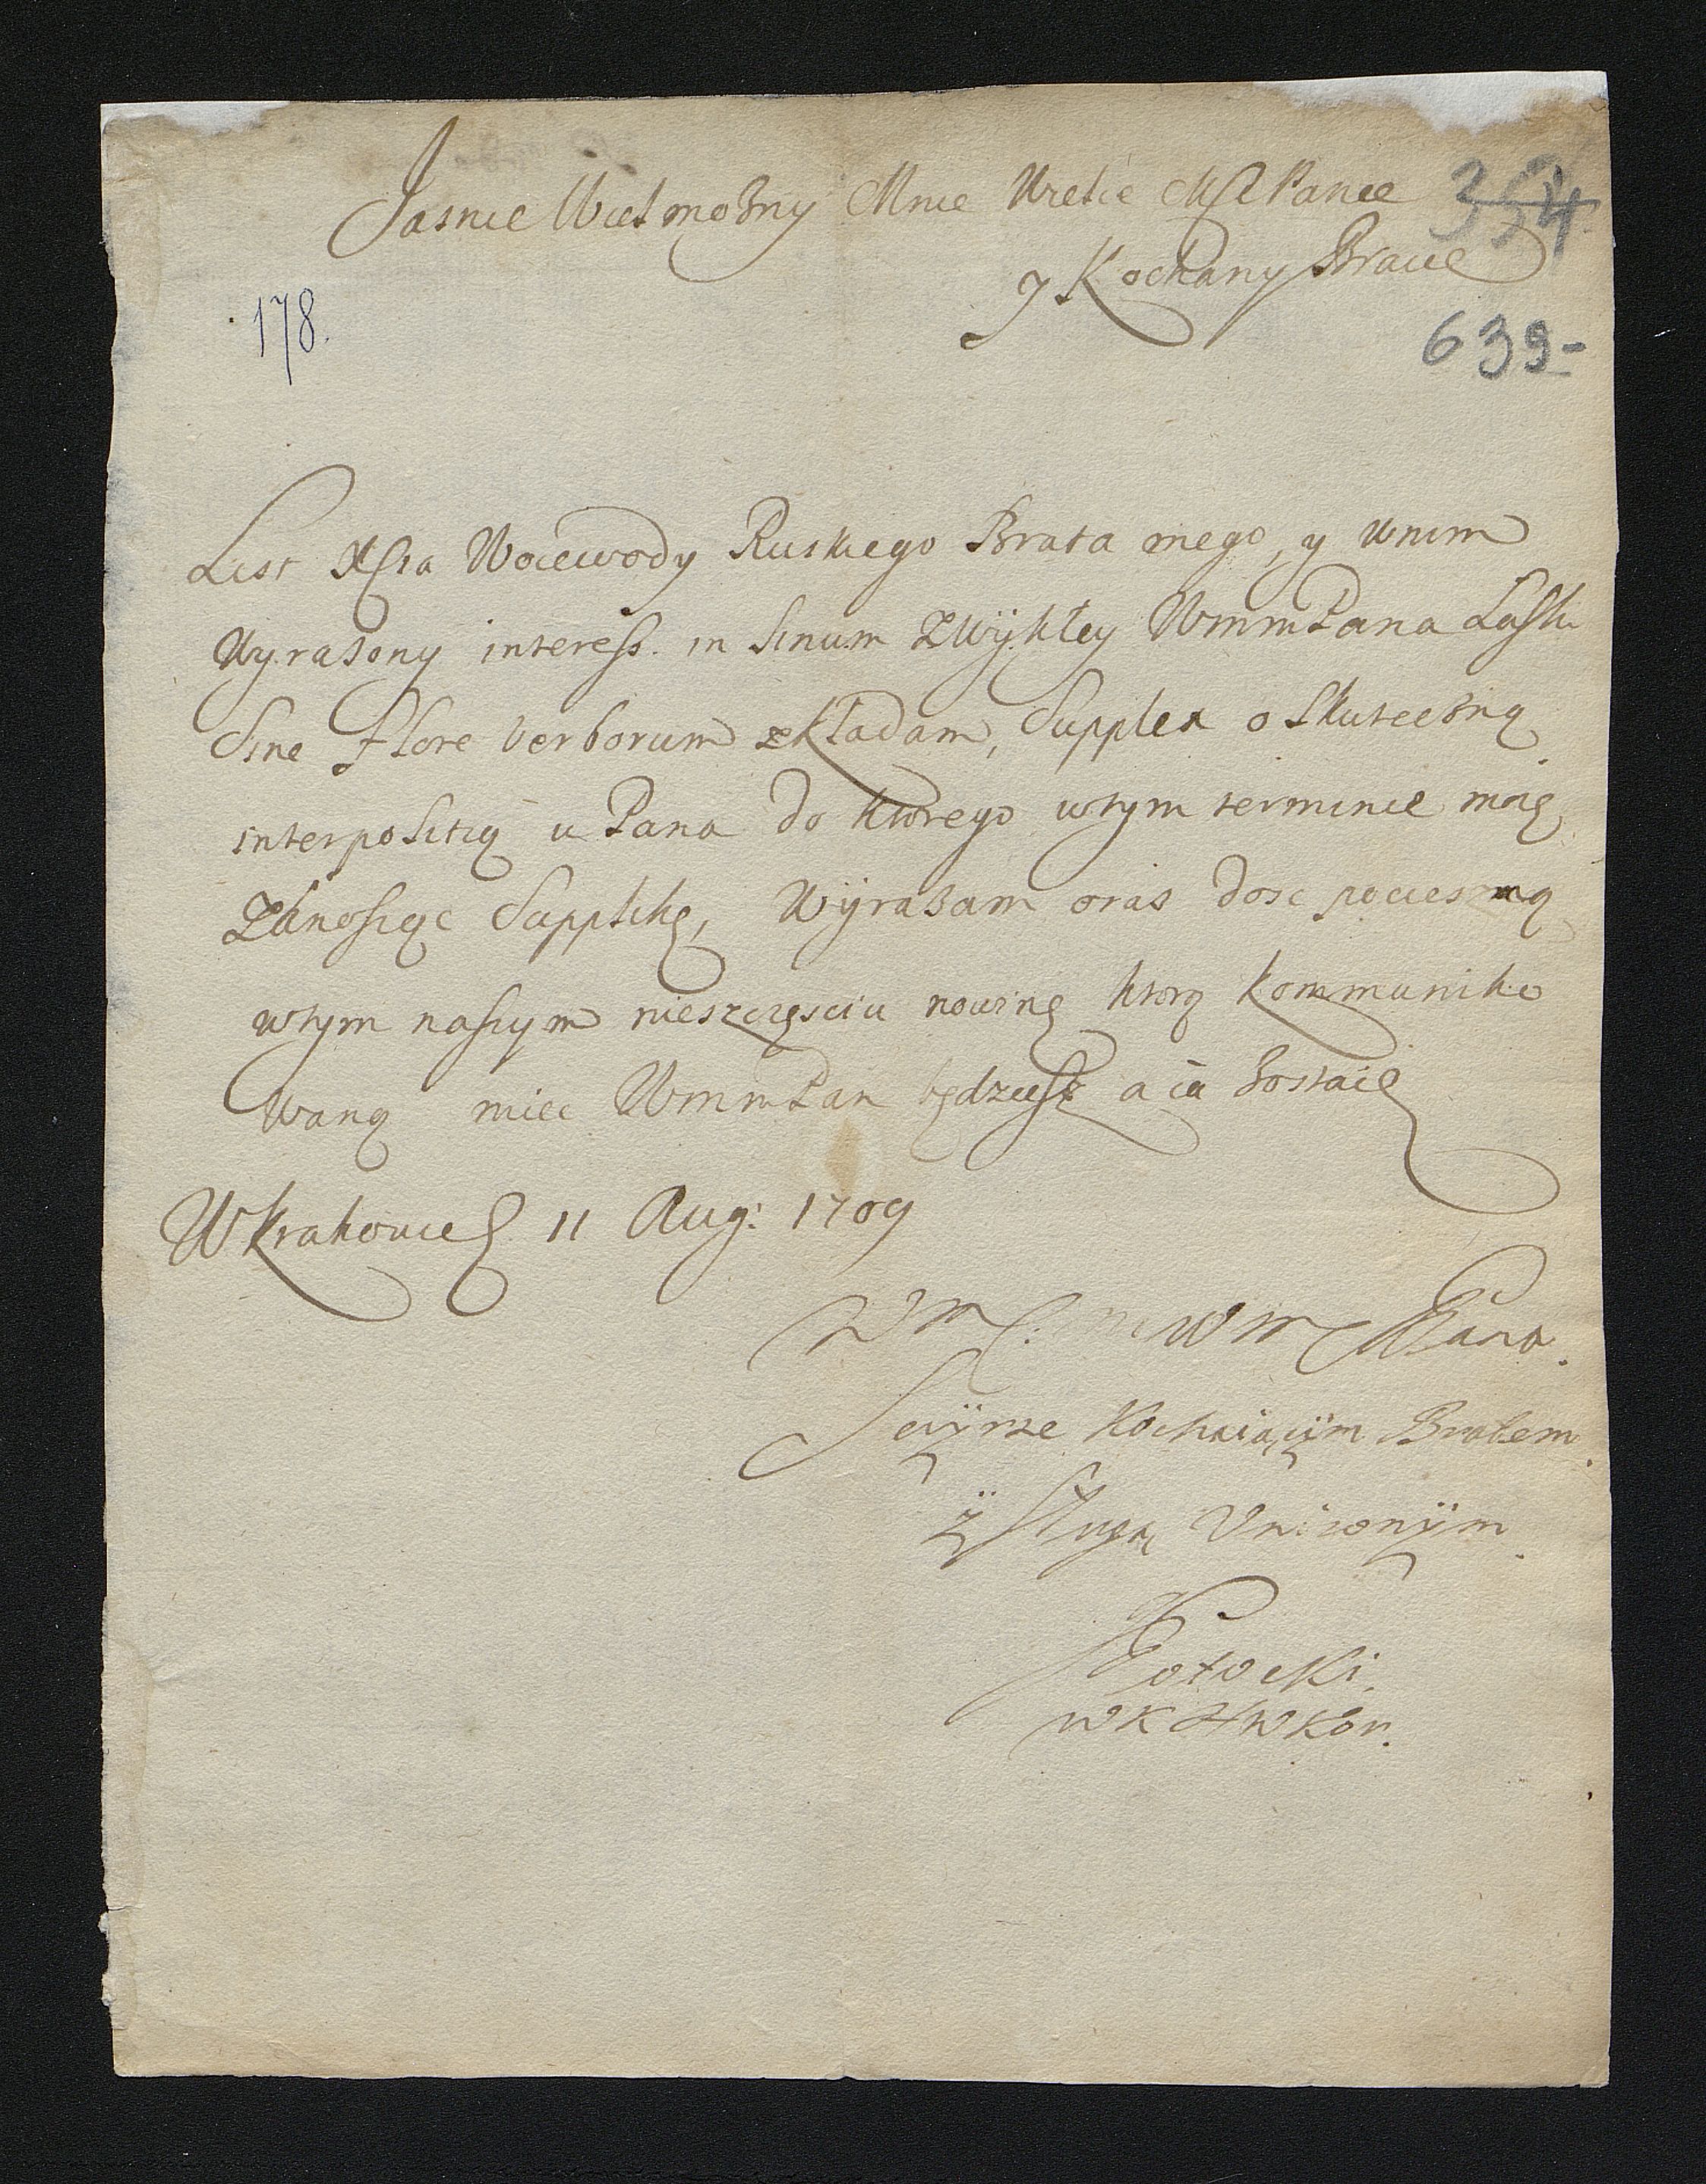 Jasnie Wielmozny Mnie Wielce Mśc Panie
354
y Kochany Bracie
178.
639-
List Xcia Woiewody Ruskiego Brata mego, y wnim
Wyrazony interess. in Sinum Zwÿkłey WmmPana Łaski
Sine Flore verborum składam, Supplex o Skuteczną
interpositią u Pana do ktorego wtym terminie moię
Zanosząc Supplikę, Wÿrazam oraz dosc pocieszną
wtym naszym nieszczęsciu nowinę ktorą kommuniko
waną miec WmmPan będziesz a ia zostaię
WKrakowie 11 Aug: 1709
Wm wm Pana
Sczÿrze Kochaiącÿm Bratem
ÿ Sługą Vnizonÿm
Potocki
WK HWKor.